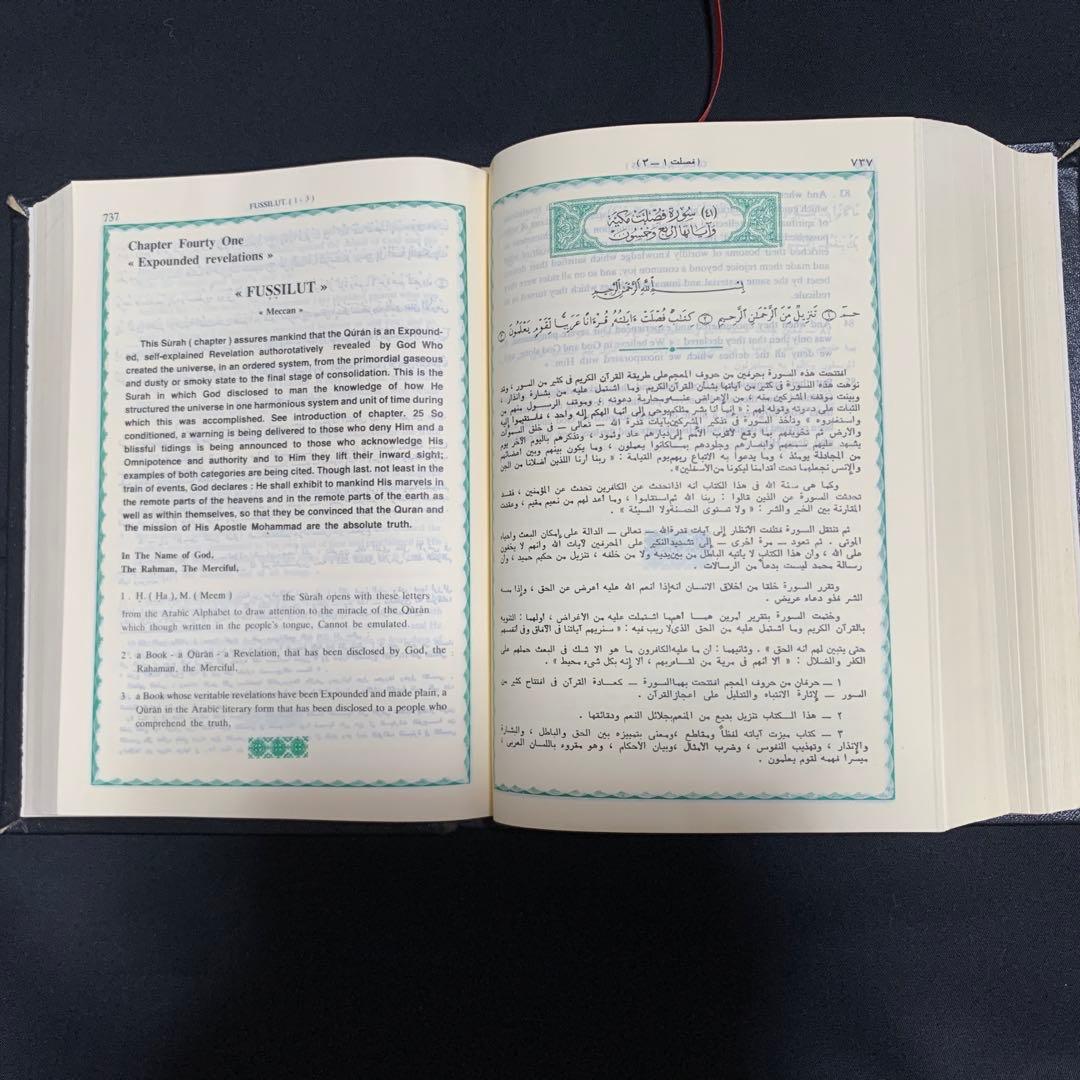 737
FUSSILUT. ( 1 - 3 )
Chapter Fourty One
« Expounded revelations »
« FUṢṢILUT »
« Meccan »
This Sūrah ( chapter ) assures mankind that the Qūrán is an Expound-
ed, self-explained Revelation authorotatively revealed by God Who
created the universe, in an ordered system, from the primordial gaseous
and dusty or smoky state to the final stage of consolidation. This is the
Surah in which God disclosed to man the knowledge of how He
structured the universe in one harmonious system and unit of time during
which this was accomplished. See introduction of chapter. 25 So
conditioned, a warning is being delivered to those who deny Him and a
blissful tidings is being announced to those who acknowledge His
Omnipotence and authority and to Him they lift their inward sight;
examples of both categories are being cited. Though last. not least in the
train of events, God declares : He shall exhibit to mankind His marvels in
the remote parts of the heavens and in the remote parts of the earth as
well as within themselves, so that they be convinced that the Quran and
the mission of His Apostle Mohammad are the absolute truth.
In The Name of God,
The Rahman, The Merciful,
1 . Ḥ. ( Ha ), M. ( Meem ) the Sūrah opens with these letters
from the Arabic Alphabet to draw attention to the miracle of the Qūrān
which though written in the people's tongue, Cannot be emulated.
2 . a Book - a Qūrān - a Revelation, that has been disclosed by God, the
Rahaman, the Merciful,
3 . a Book whose veritable revelations have been Expounded and made plain, a
Qūrān in the Arabic literary form that has been disclosed to a people who
comprehend the truth,
( فصلت ١ — ٣ )
٧٣٧
(٤١) سورة فصلت مكية
وآياتها أربع وخمسون
بسم الله الرحمن الرحيم
حمٓ ١ تَنزِيلٌ مِّنَ الرَّحْمَٰنِ الرَّحِيمِ ٢ كِتَٰبٌ فُصِّلَتْ ءَايَٰتُهُۥ قُرْءَانًا عَرَبِيًّا لِّقَوْمٍ يَعْلَمُونَ ٣
افتتحت هذه السورة بحرفين من حروف المعجم على طريقة القرآن الكريم فى كثير من السور ، وقد
نوهت هذه السورة فى كثير من آياتها بشأن القرآن الكريم وما اشتمل عليه من بشارة وانذار ،
وبينت موقف المشركين منه ، من الإعراض عنه ومحاربة دعوته ، وموقف الرسول منهم من
الثبات على دعوته وقوله لهم : « إنما أنا بشر مثلكم يوحى إلى أنما الهكم إله واحد ، فاستقيموا إليه
واستغفروه » وتأخذ السورة فى تذكير المشركين بآيات قدرة الله — تعالى — فى خلق السموات
والأرض ثم تخويفهم بما وقع لأقرب الأمم إلى ديارهم عاد وثمود ، وتذكرهم باليوم الآخر يوم
يشهد عليهم سمعهم وأبصارهم وجلودهم بما كانوا يعملون ، وما يكون بينهم وبين أعضائهم
من المجادلة يومئذ ، وما يدعوا به الاتباع ربهم يوم القيامة : « ربنا أرنا اللذين أضلانا من الجن
والإنس نجعلهما تحت أقدامنا ليكونا من الأسفلين» .
وكما هى سنة الله فى هذا الكتاب أنه اذا تحدث عن الكافرين تحدث عن المؤمنين ، فقد
تحدثت السورة عن الذين قالوا : ربنا الله ثم استقاموا ، وما أعد لهم من نعيم مقيم ، وعقدت
المقارنة بين الخير والشر : « ولا تستوى الحسنة ولا السيئة » .
ثم تنتقل السورة فتلفت الأنظار إلى آيات قدرة الله — تعالى — الدالة على إمكان البعث وإحياء
الموتى . ثم تعود — مرة أخرى — إلى تشديد النكير على المحرفين لآيات الله وانهم لا يخفون
على الله ، وأن هذا الكتاب لا يأتيه الباطل من بين يديه ولا من خلفه ، تنزيل من حكيم حميد ، وأن
رسالة محمد ليست بدعا من الرسالات .
وتقرر السورة خلقا من أخلاق الانسان أنه إذا أنعم الله عليه أعرض عن الحق ، وإذا مسه
الشر فذو دعاء عريض .
وختمت السورة بتقرير أمرين هما أهم ما اشتملت عليه من الأغراض ، أولهما : التنويه
بالقرآن الكريم وما اشتمل عليه من الحق الذى لا ريب فيه : « سنريهم آياتنا فى الآفاق وفى أنفسهم
حتى يتبين لهم أنه الحق » . وثانيهما : أن ما عليه الكافرون ما هو الا شك فى البعث حملهم على
الكفر والضلال : « ألا أنهم فى مرية من لقاء ربهم ، ألا إنه بكل شىء محيط » .
١ — حرفان من حروف المعجم افتتحت بهما السورة — كعادة القرآن فى افتتاح كثير من
السور — لإثارة الانتباه والتدليل على اعجاز القرآن .
٢ — هذا الكتاب تنزيل بديع من المنعم بجلائل النعم ودقائقها .
٣ — كتاب ميزت آياته لفظاً ومقاطع ، ومعنى بتمييزه بين الحق والباطل ، والبشارة
والإنذار ، وتهذيب النفوس ، وضرب الأمثال ، وبيان الأحكام ، وهو مقروء باللسان العربى ،
ميسرا فهمه لقوم يعلمون .